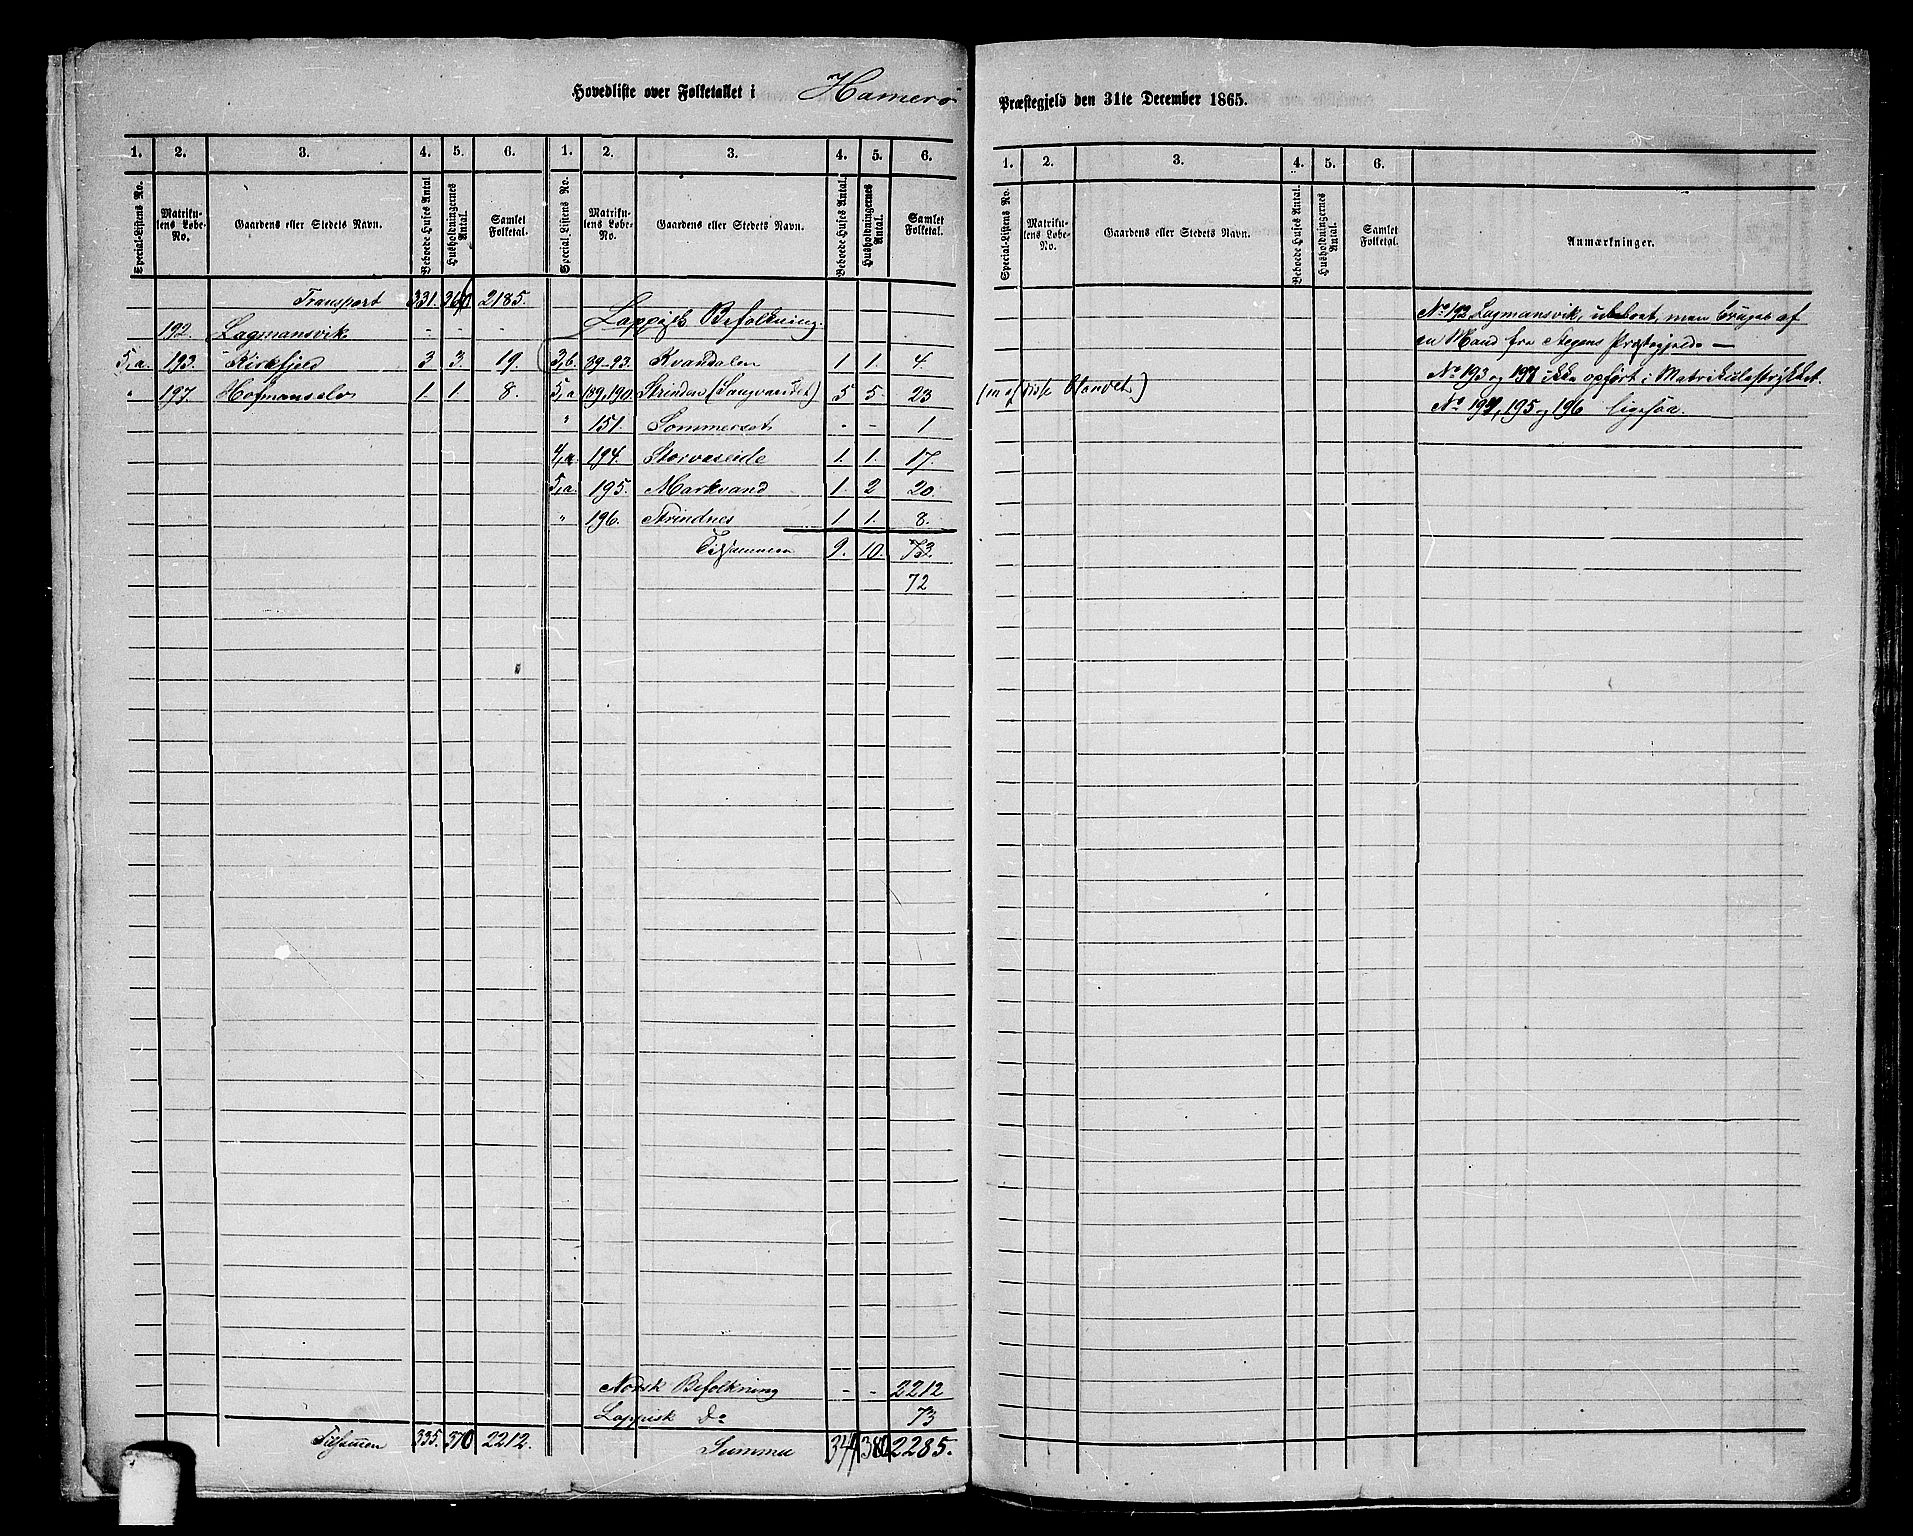 Hovedliste over Folketallet i Hamerö Præstegjeld den 31te December 1865.
1. 2. 3. 4. 5. 6. 1. 2. 3. 4. 5. 6.
Special-Listens No. Matrikulens Løbe-No. Gaardens eller Stedets Navn. Beboede Huses Antal Husholdningernes Antal. Samlet Folketal. Special Listens No. Matrikulens Løbe-No. Gaardens eller Stedets Navn. Beboede Huses Antal. Husholdningernes Antal. Samlet Folketal.
Transport 331. 366 2185.
192. Lagmansvik - - -
5,a. 193. Kirkfjeld 3 3. 19.
" 197. Hofmanselv 1. 1. 8.
Tilsammen 335. 370 2212.
Lappisk Befolkning.
3,b. 39-93. Kvandalen 1. 1. 4.
5,a 189,190. Strinden (Sagvandet) 5 5. 23
" 151. Sommerset - - 1
4,a 194. Storvaseide 1. 1. 17.
5,a. 195. Markvand 1. 2 20.
" 196. Strindnes 1. 1. 8.
Tilsammen 9. 10. 73.
72
Norsk Befolkning - - 2212
Lappisk Do 73
Summa 344 380 2285.
1. 2. 3. 4. 5. 6.
Special-Listens No. Matrikulens Løbe-No. Gaardens eller Stedets Navn. Beboede Huses Antal. Husholdningernes Antal. Samlet Folketal. Anmærkninger.
No 192 Lagmansvik, ubeboet, men bruges af
en Mand fra Stegens Præstegjeld. —
No 193 og 197 ikke opført i Matrikulastrykket.
No 194, 195 og 196 ligesaa.
(en af disse blandet.)